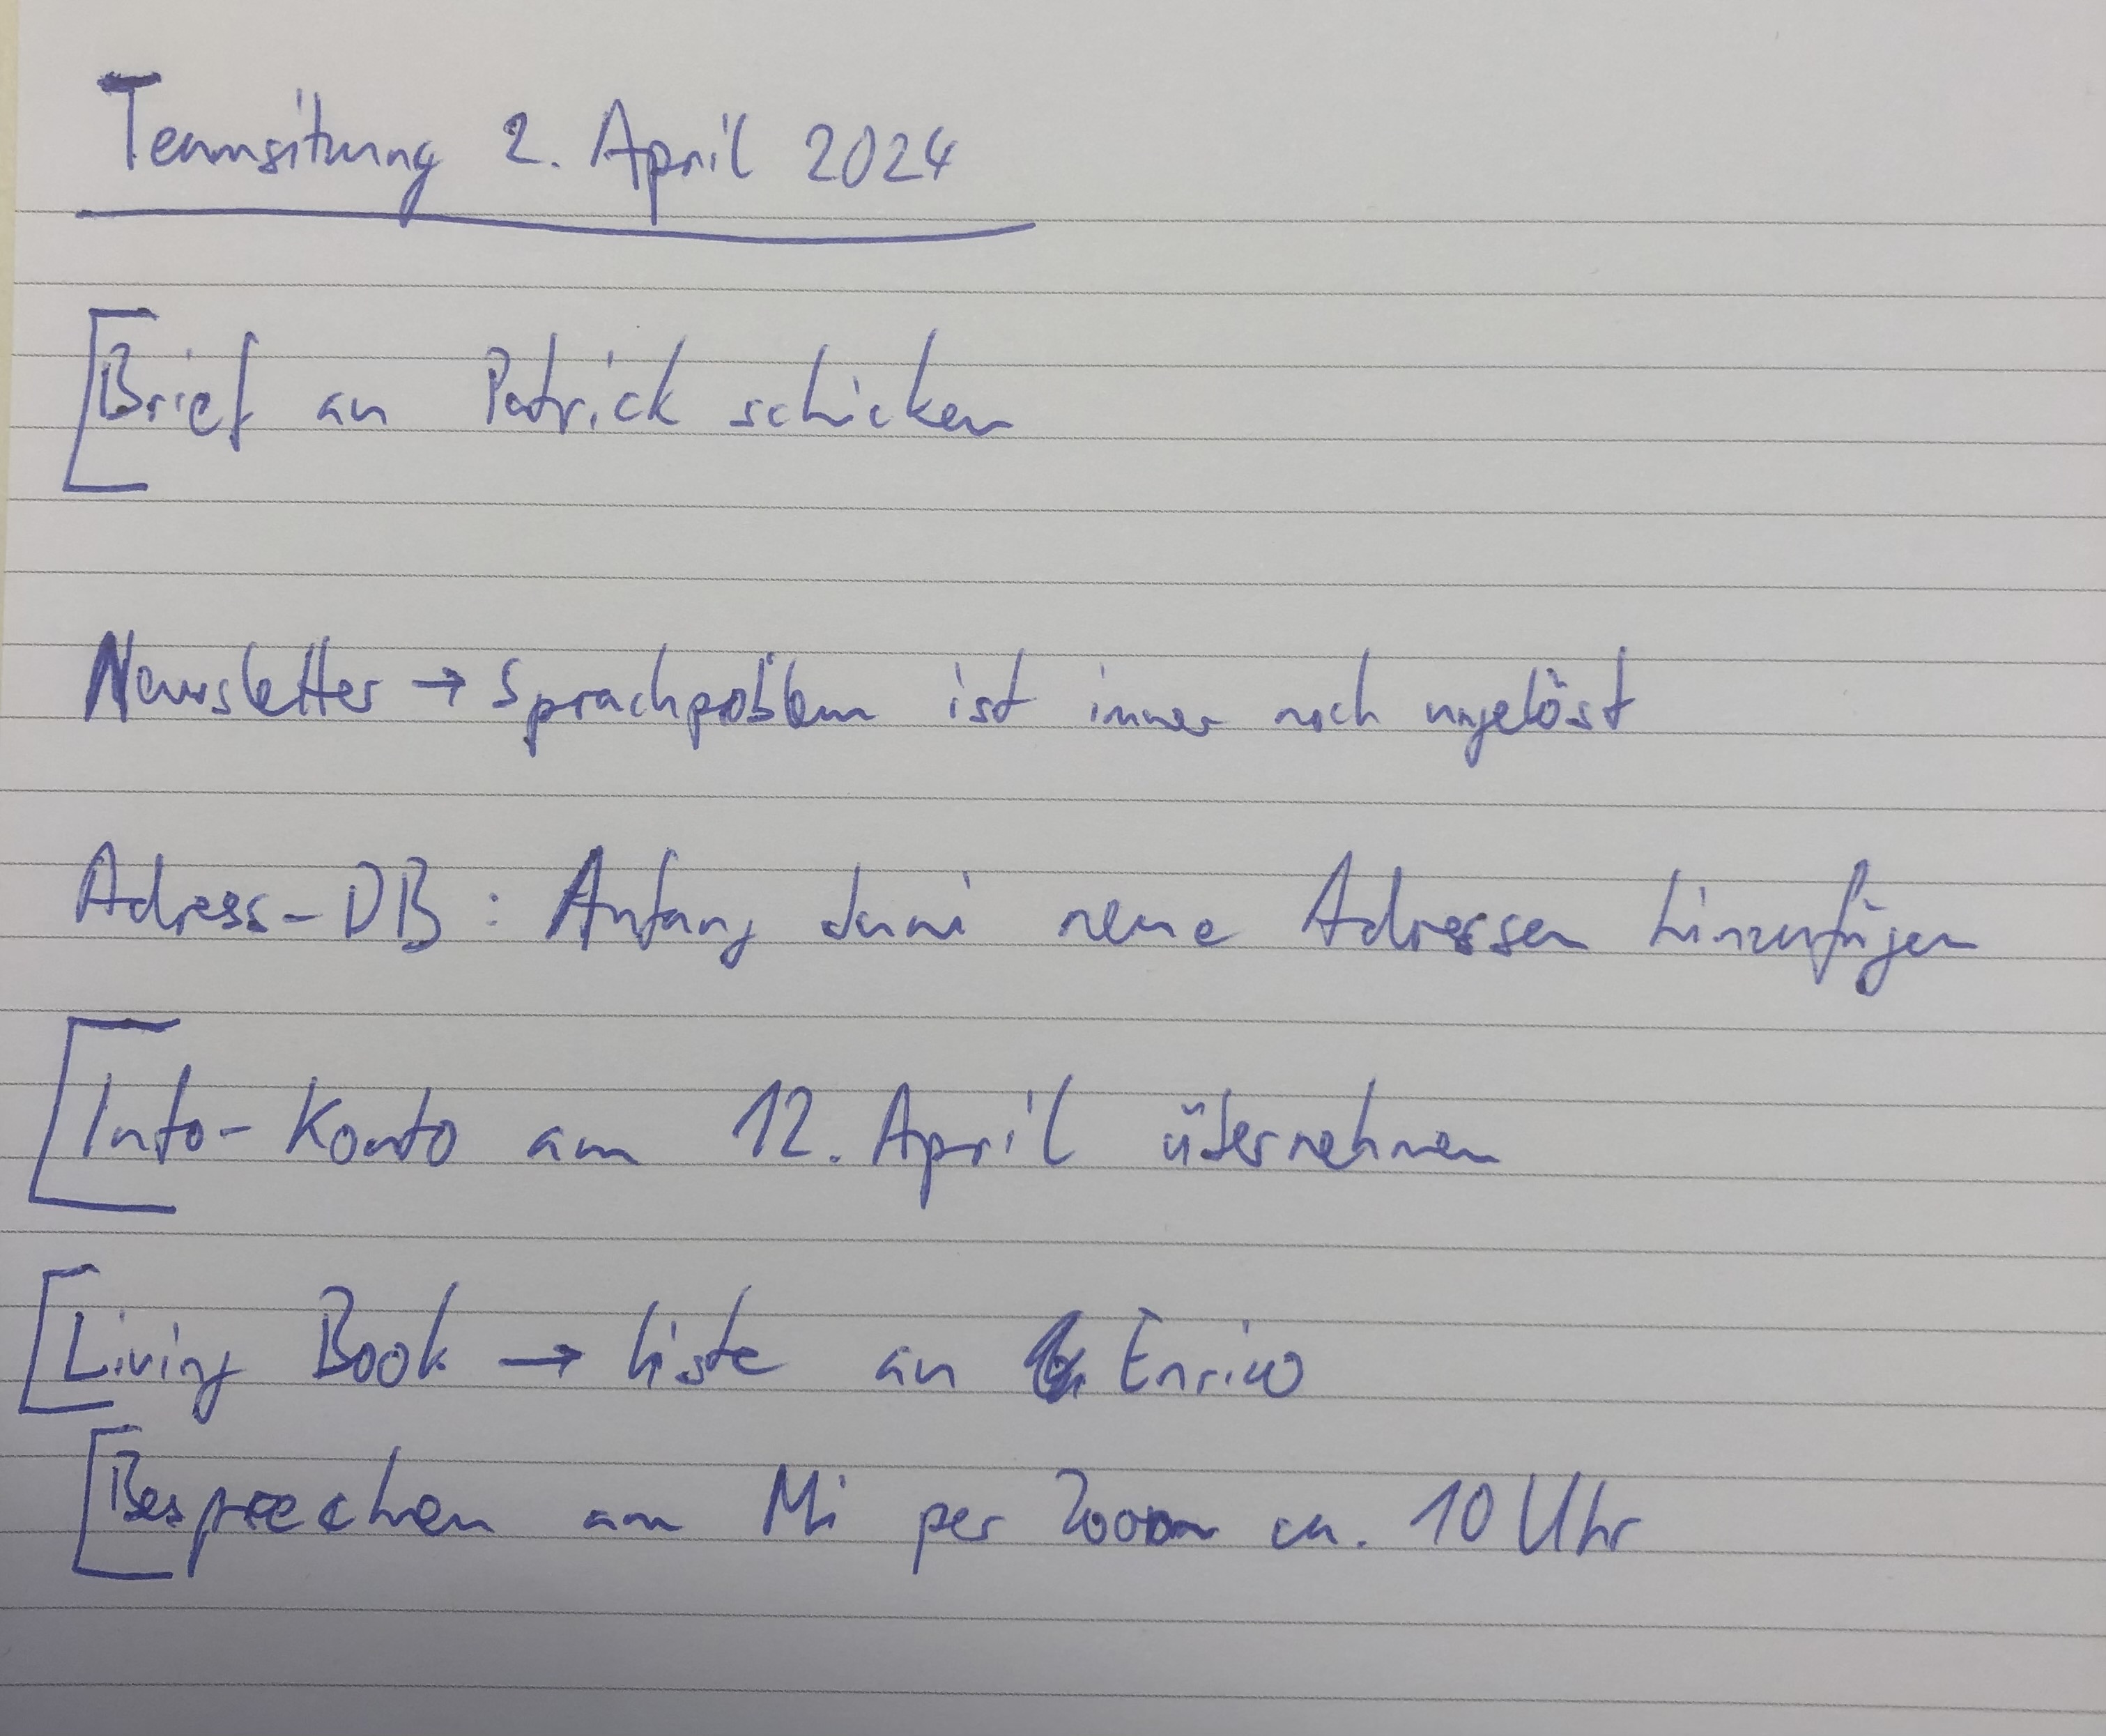 Teamsitzung 2. April 2024
[Brief an Patrick schicken
Newsletter → Sprachproblem ist immer noch ungelöst
Adress-DB: Anfang Juni neue Adressen hinzufügen
[Info-Konto am 12. April übernehmen
[Living Book → Liste an Enrico
[Besprechen am Mi per Zoom ca. 10 Uhr